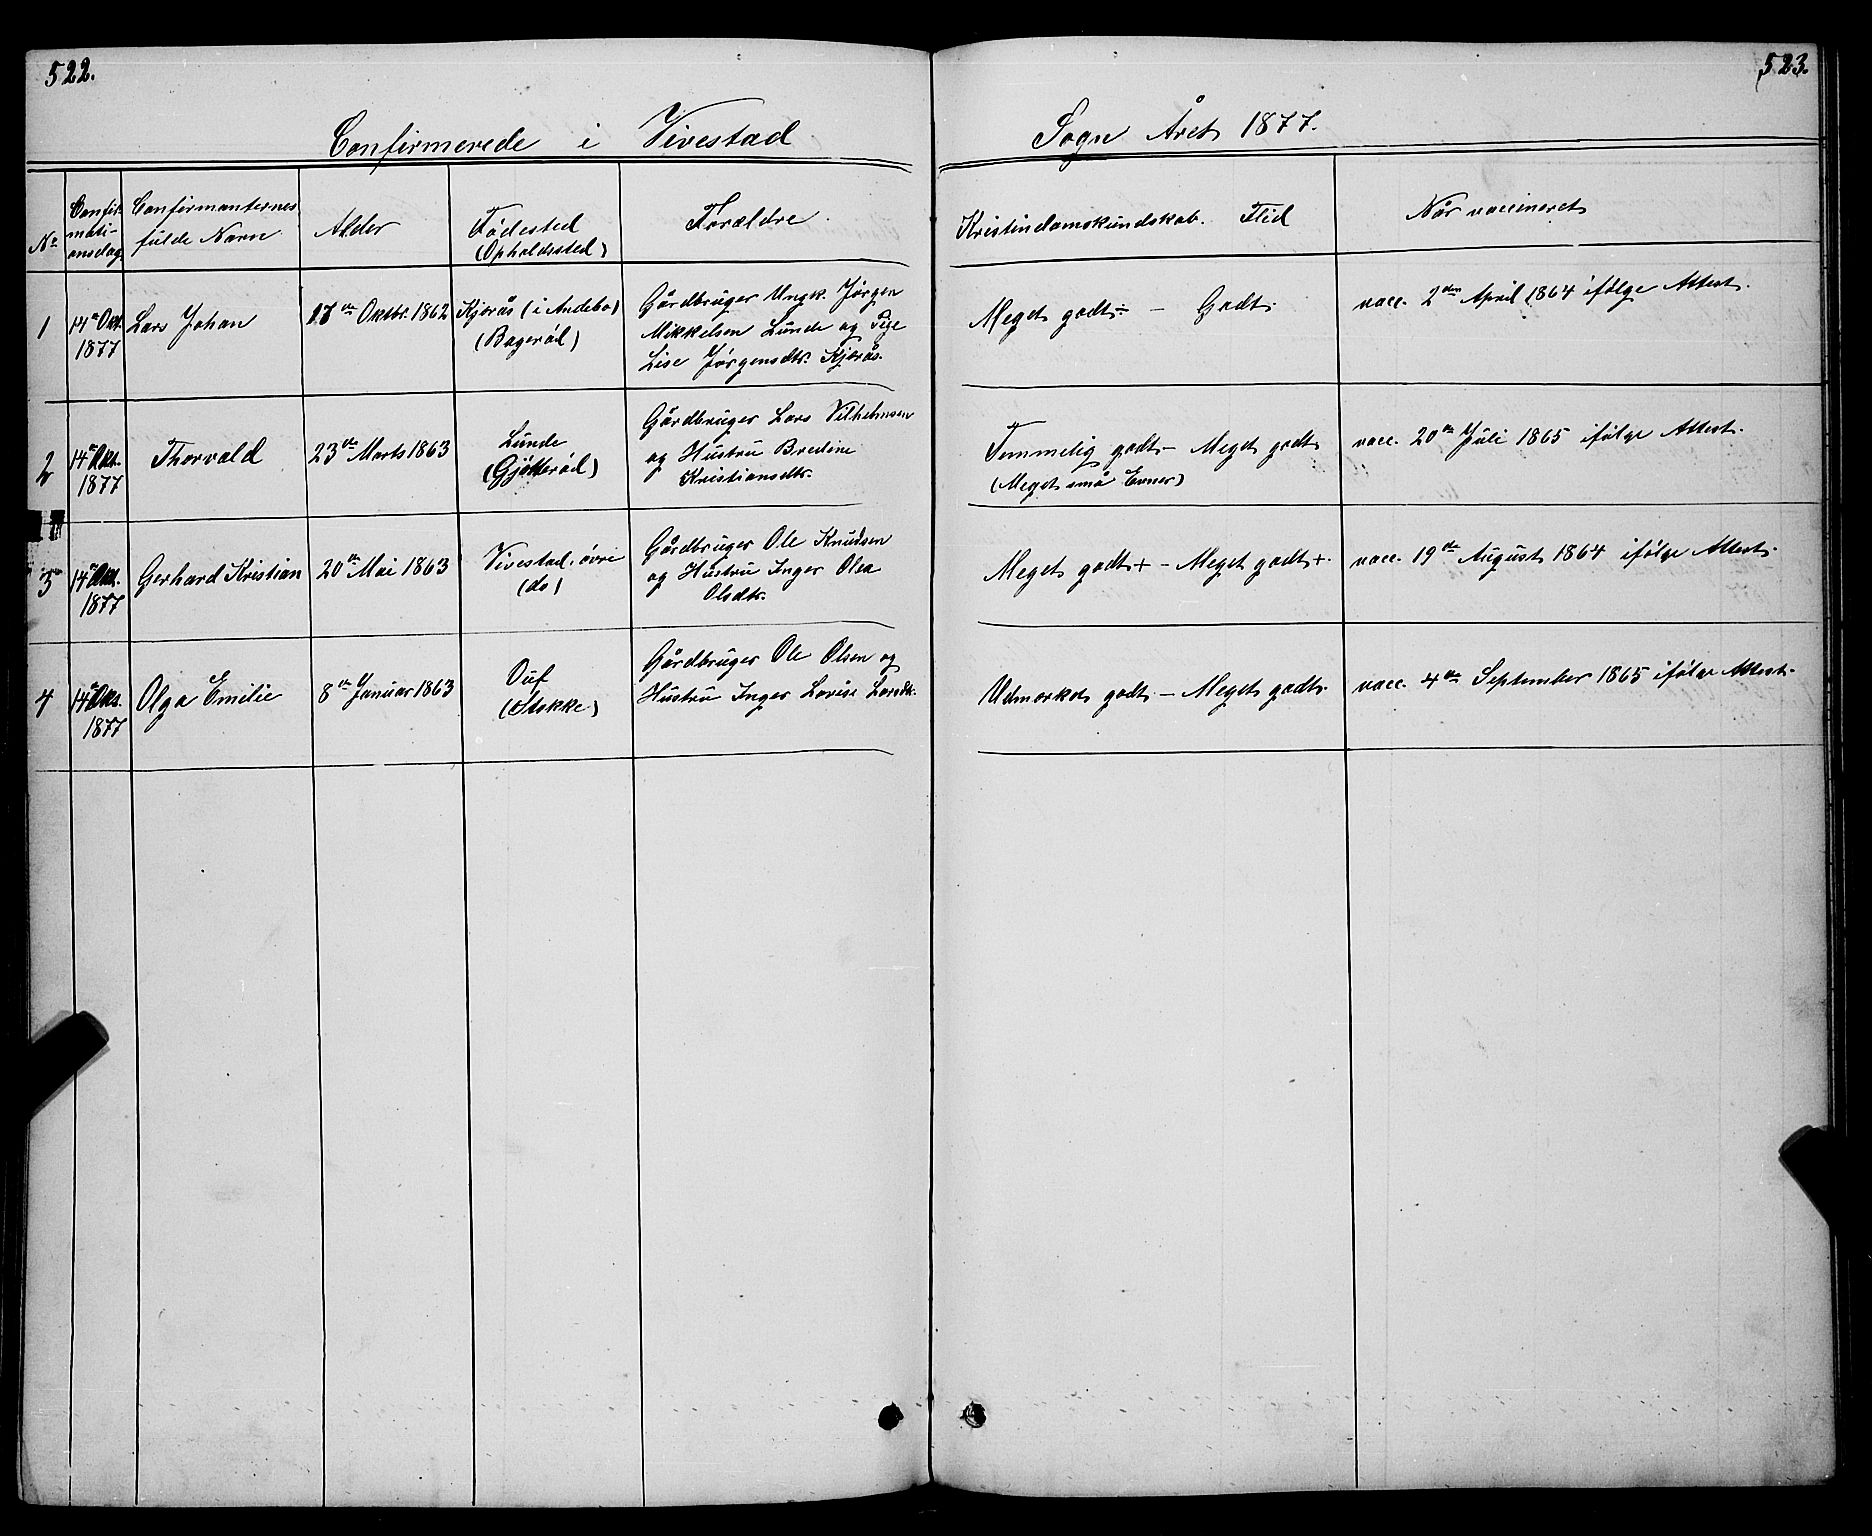 522.
523.
Confirmerede i Vivestad Sogn Året 1877.
No
Confir-
mati-
onsdag
Confirmanternes
fulde Navn
Alder
Fødested
(Opholdssted)
Forældre.
Kristendomskundskab. Flid
Når vaccineret
1
14de Okt.
1877
Lars Johan
17de Oktbr. 1862
Kjærås (i Andebo)
(Bagerød)
Gårdbruger Ungk. Jørgen
Mikkelsen Lunde og Pige
Lise Jørgensdtr. Kjærås.
Meget godt÷ – Godt.
vacc. 2den April 1864 ifølge Attest.
2
14de Okt.
1877
Thorvald
23de Marts 1863
Lunde
(Gjötterød)
Gårdbruger Lars Vilhelmsen
og Hustru Bredine
Kristiansdtr.
Temmelig godt – Meget godt
(Meget små Evner)
vacc. 20de Juli 1865 ifølge Attest.
3
14de Okt.
1877
Gerhard Kristian
20de Mai 1863
Vivestad, övre
(do)
Gårdbruger Ole Knudsen
og Hustru Inger Olea
Olsdtr.
Meget godt+ – Meget godt+.
vacc. 19de August 1864 ifølge Attest.
4
14de Okt.
1877
Olga Emilie
8de Januar 1863
Ouf
(Stokke)
Gårdbruger Ole Olsen og
Hustru Inger Lovise Larsdtr.
Udmærket godt. – Meget godt.
vacc. 4de September 1865 ifølge Attest.